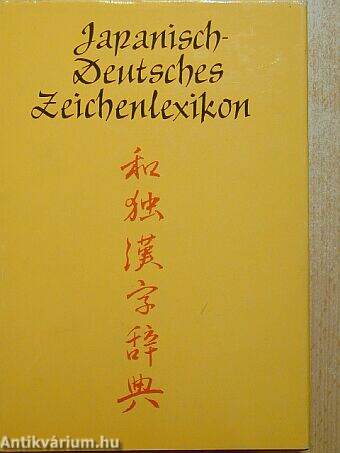 Japanisch-
Deutsches
Zeichenlexikon
和独漢字辞典
Antikvárium.hu